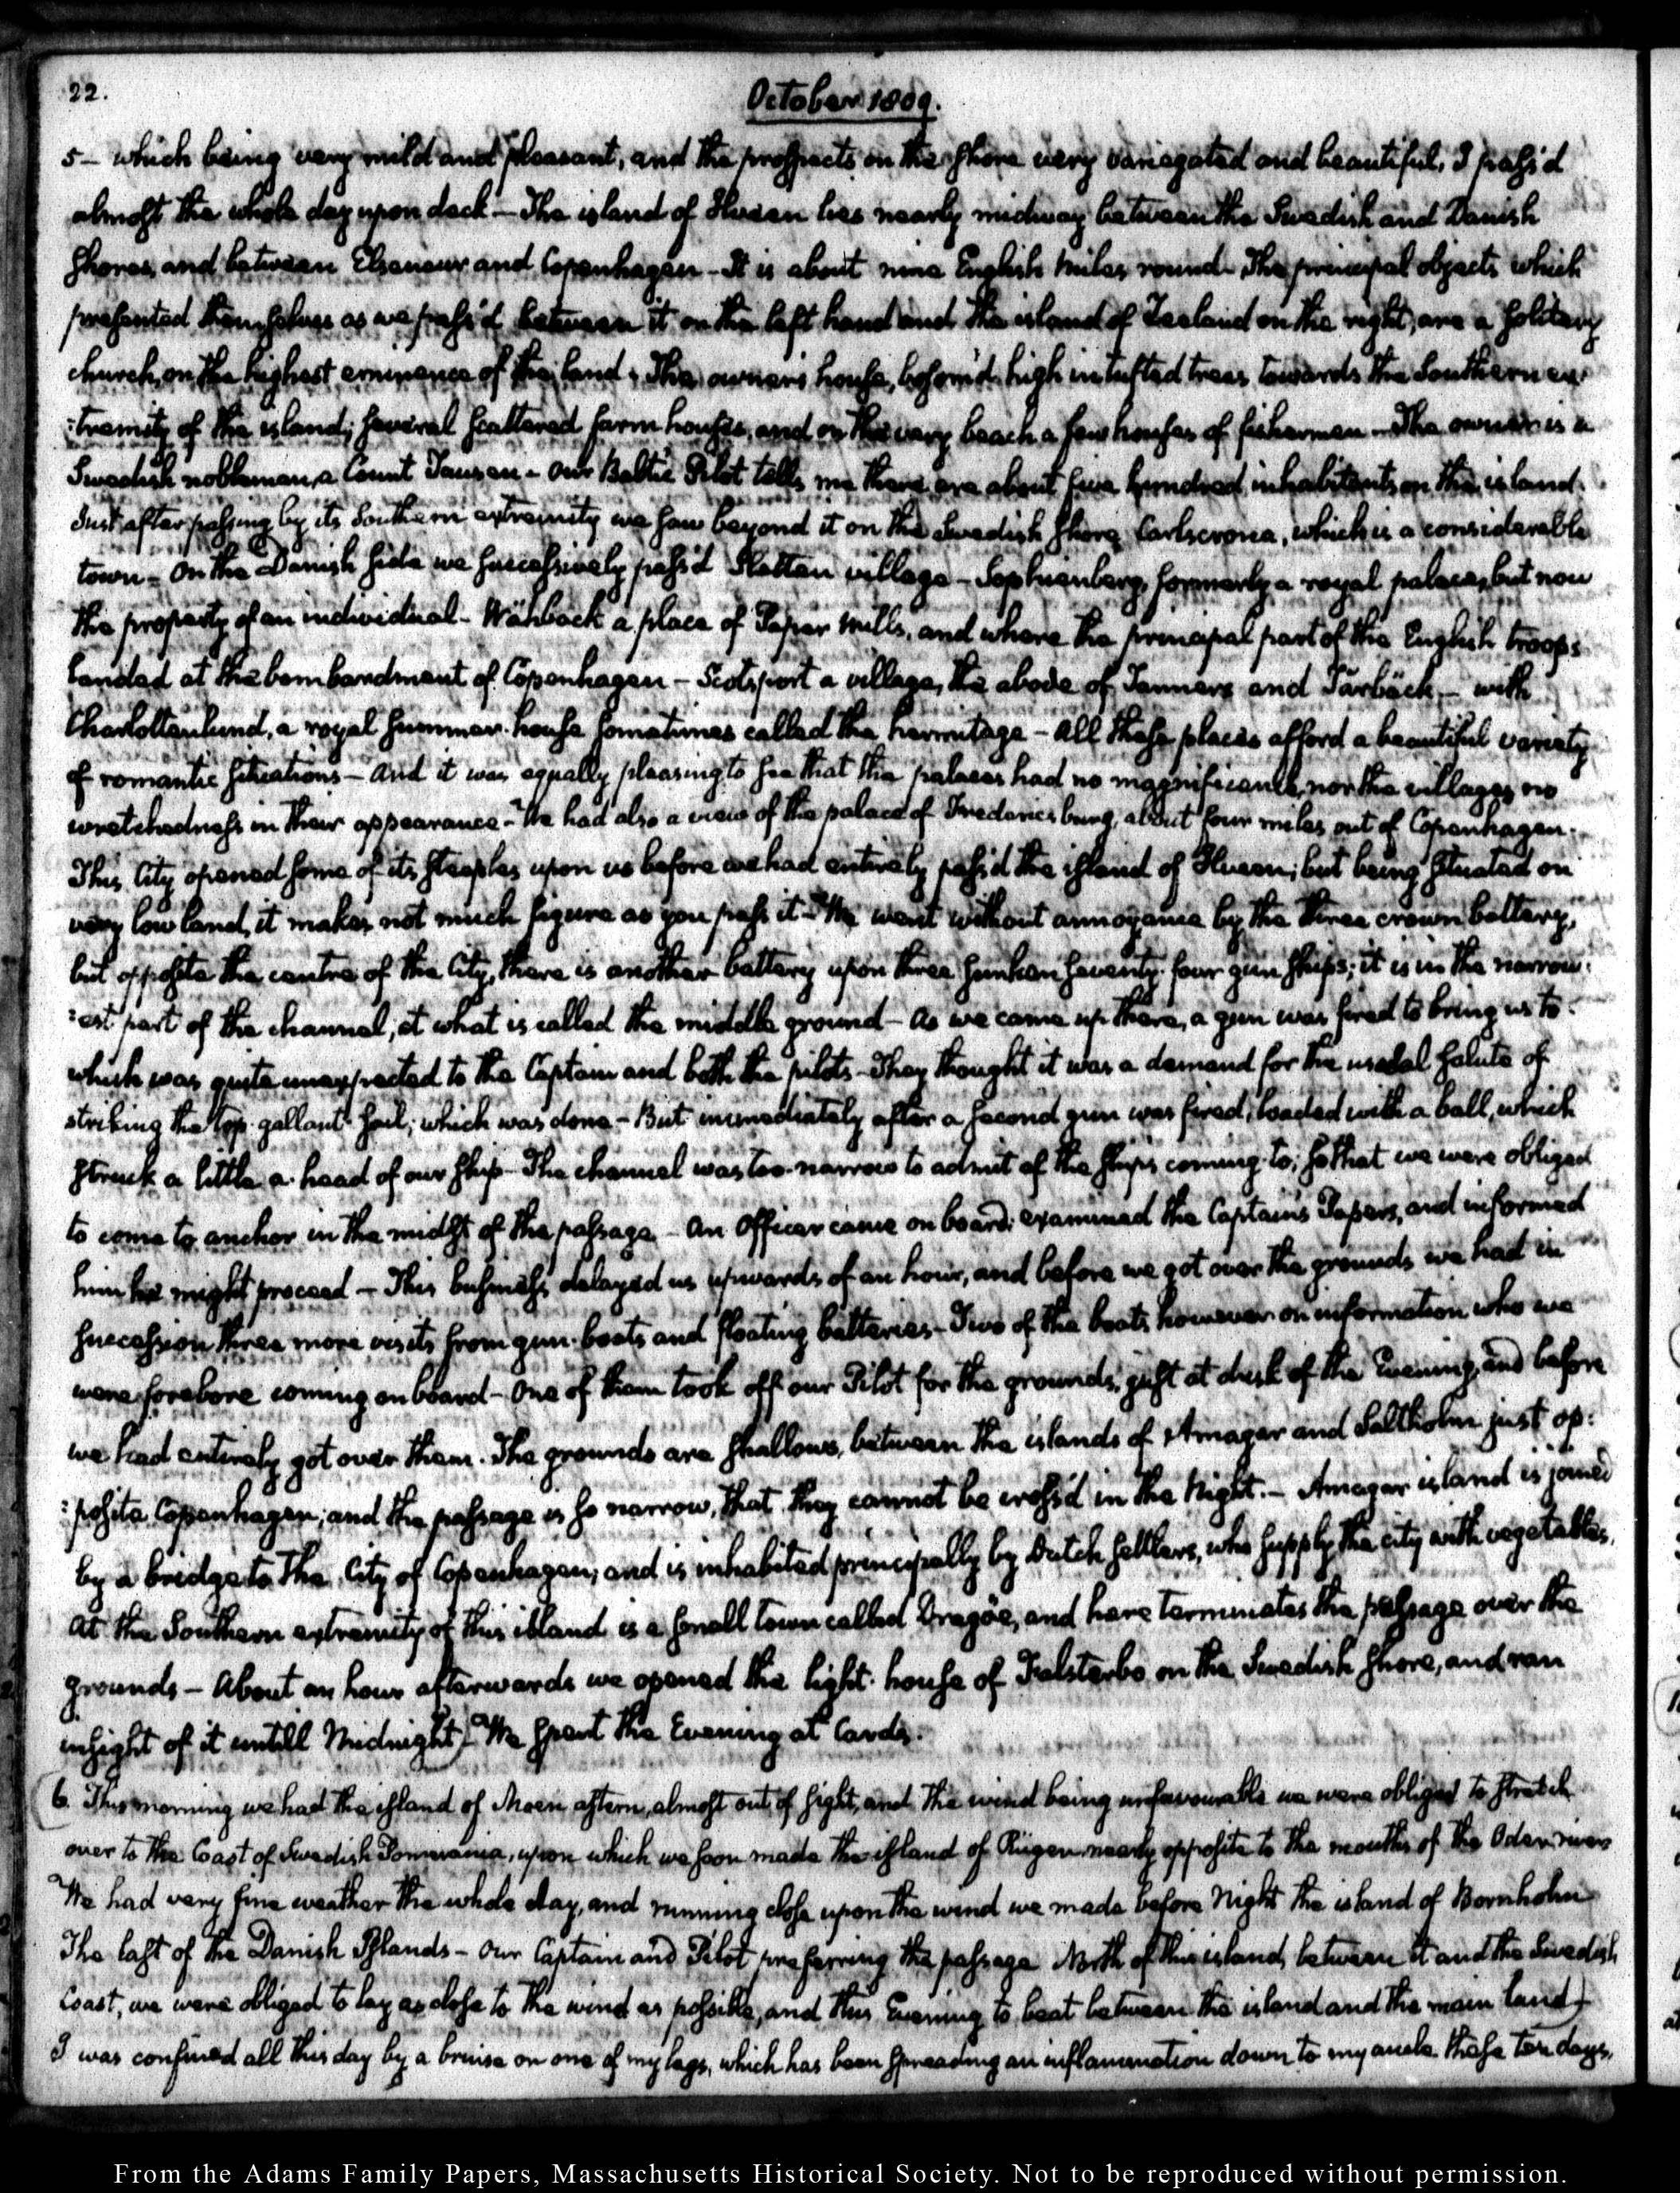 22.
October 1809.
5 — which being very mild and pleasant, and the prospects on the shore very variegated and beautiful, I pass'd
almost the whole day upon deck — The island of Hueen lies nearly midway between the Swedish and Danish
shores, and between Elseneur and Copenhagen — It is about nine English miles round. The principal objects which
presented themselves as we pass'd between it on the left hand and the island of Zealand on the right, are a solitary
church, on the highest eminence of the land. The owner's house, bosom'd high in tufted trees towards the Southern ex:
:tremity of the island; several scattered farm houses, and on the very beach a few houses of fishermen — The owner is a
Swedish nobleman, a Count — Our Baltic Pilot tells me there are about five hundred inhabitants on the island.
Just after passing by its Southern extremity we saw beyond it on the Swedish shore Carlscrona, which is a considerable
town — On the Danish side we successively pass'd Slotten village — Sophienberg, formerly a royal palace, but now
the property of an individual — Wähback a place of Paper Mills, and where the principal part of the English troops
landed at the bombardment of Copenhagen — Scotsport a village, the abode of Tanners and Tärbäck — with
Charlottenlund, a royal summer-house sometimes called the hermitage — All these places afford a beautiful variety
of romantic situations — And it was equally pleasing to see that the palaces had no magnificence, nor the villages no
wretchedness in their appearance — We had also a view of the palace of Fredericsburg, about four miles out of Copenhagen.
This City opened some of its steeples upon us before we had entirely pass'd the island of Hueen; but being situated on
very low land, it makes not much figure as you pass it — We went without annoyance by the three crown battery,
but opposite the centre of the City, there is another battery upon three sunken seventy-four gun ships; it is in the narrow:
:est part of the channel, at what is called the middle ground — As we came up there, a gun was fired to bring us to:
which was quite unexpected to the Captain and both the pilots — They thought it was a demand for the usual salute of
striking the top-gallant-sail; which was done — But immediately after a second gun was fired, loaded with a ball, which
struck a little a-head of our ship — The channel was too narrow to admit of the ship's coming-to; so that we were obliged
to come to anchor in the midst of the passage — An Officer came on board; examined the Captain's Papers, and informed
him he might proceed — This business delayed us upwards of an hour, and before we got over the grounds we had in
succession three more visits from gun-boats and floating batteries — Two of the boats however on information who we
were forebore coming on board — One of them took off our Pilot for the grounds, just at dusk of the Evening, and before
we had entirely got over them. The grounds are shallows, between the islands of Amager and Saltholm just op:
:posite Copenhagen; and the passage is so narrow, that they cannot be cross'd in the Night. — Amager island is joined
by a bridge to the City of Copenhagen; and is inhabited principally by Dutch settlers, who supply the city with vegetables.
At the Southern extremity of this island is a small town called Dragöe, and here terminates the passage over the
grounds — About an hour afterwards we opened the light-house of Falsterbo on the Swedish shore, and ran
insight of it untill Midnight. We spent the Evening at Cards.
6. This morning we had the island of Moen astern, almost out of sight, and the wind being unfavourable we were obliged to stretch
over to the Coast of Swedish Pomerania, upon which we soon made the island of Rügen nearly opposite to the mouths of the Oder river
We had very fine weather the whole day, and running close upon the wind we made before Night the island of Bornholm
The last of the Danish Islands — Our Captain and Pilot preferring the passage North of this island, between it and the Swedish
Coast, we were obliged to lay as close to the wind as possible, and this Evening to beat between the island and the main land.
I was confined all this day by a bruise on one of my legs, which has been spreading an inflammation down to my ancle these ten days.
From the Adams Family Papers, Massachusetts Historical Society. Not to be reproduced without permission.